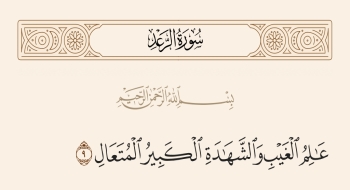 سُورَةُ الرَّعْدِ
بِسْمِ اللَّهِ الرَّحْمَٰنِ الرَّحِيمِ
عَٰلِمُ الْغَيْبِ وَالشَّهَٰدَةِ الْكَبِيرُ الْمُتَعَالِ ٩